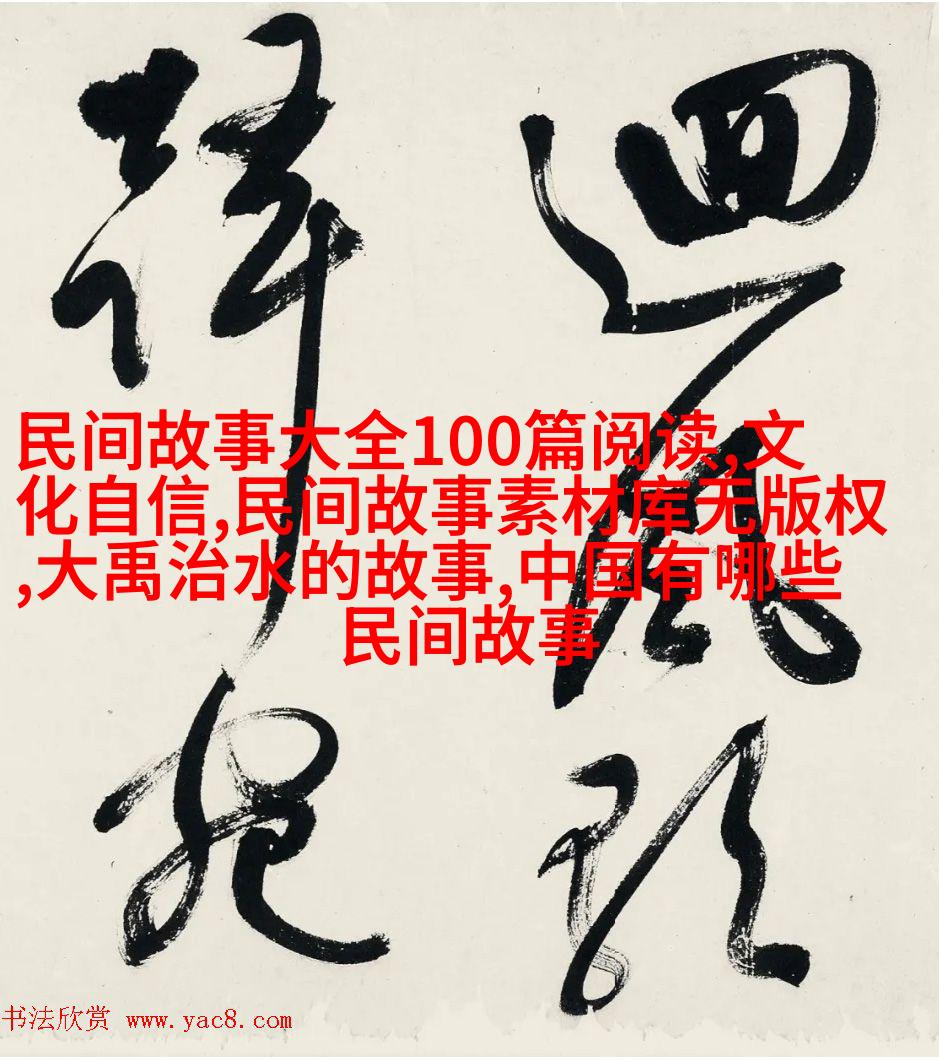 迴風
民间故事大全100篇阅读,文
化自信,民间故事素材库无版权
,大禹治水的故事,中国有哪些
民间故事
书法欣赏 www.yac8.com